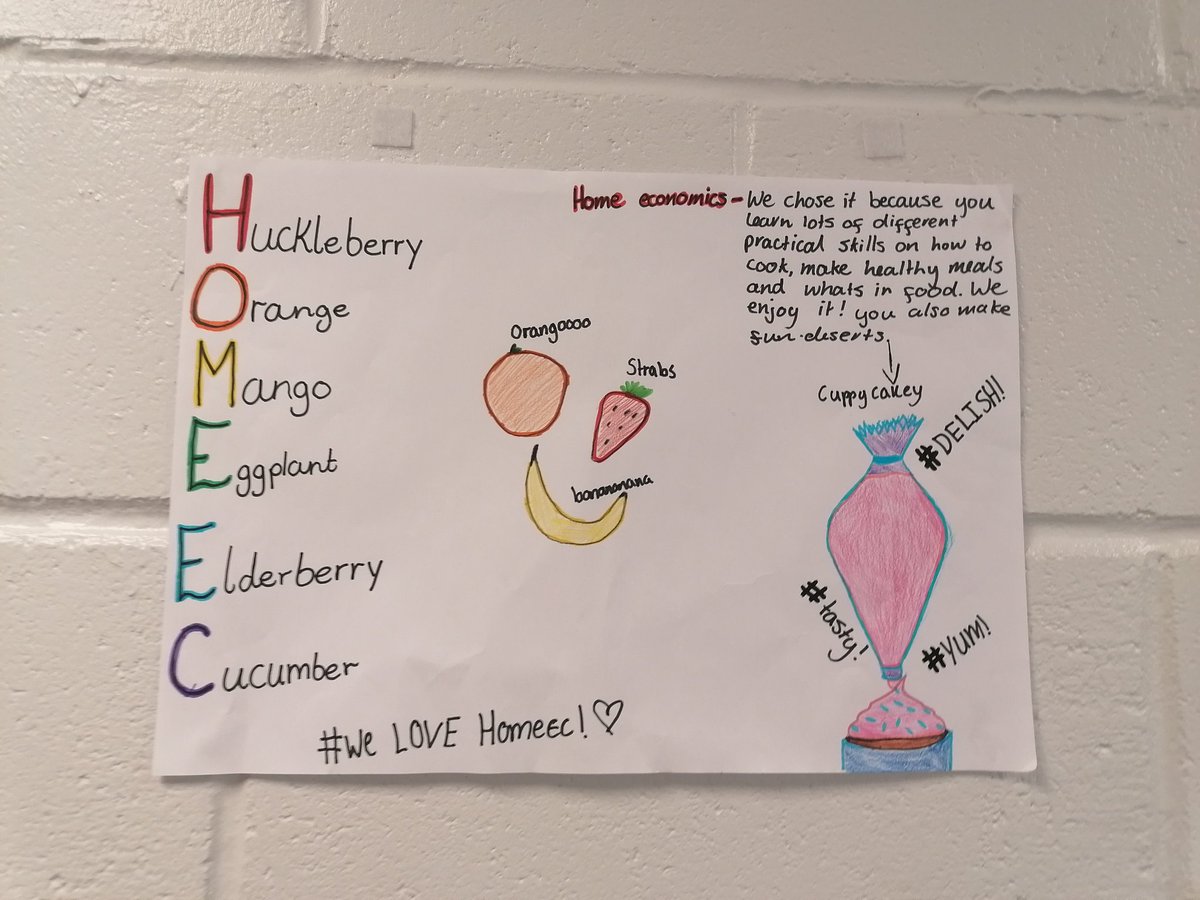 Huckleberry
Orange
Mango
Eggplant
Elderberry
Cucumber
#We LOVE HomeEc!♡
Orangoooo
Strabs
banananana
Home economics - We chose it because you
learn lots of different
practical skills on how to
cook, make healthy meals
and whats in food. We
enjoy it! you also make
fun deserts
Cuppycakey
#DELISH!
#tasty!
#Yum!